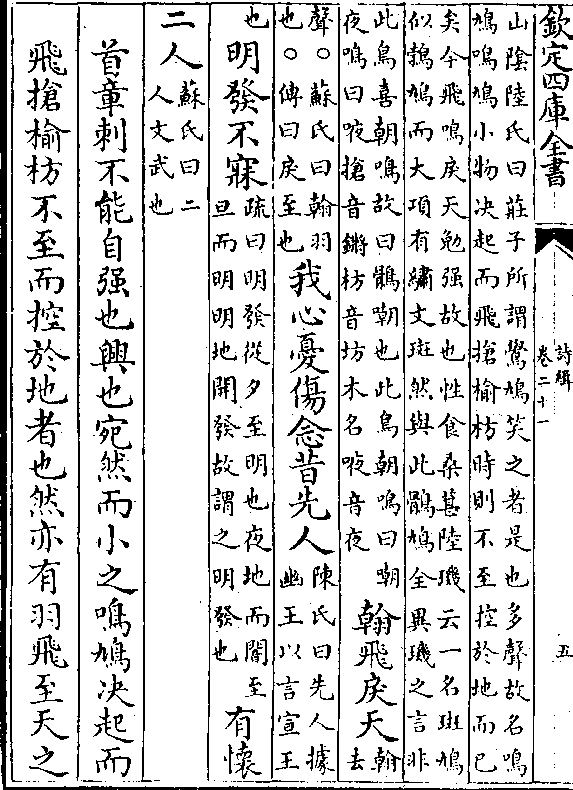 欽定四庫全書
詩緝
卷二十一
五
山隂陸氏曰莊子所謂鷽鳩笑之者是也多聲故名鳴
鳩鳴鳩小物决起而飛搶榆枋時則不至控於地而已
矣今飛鳴戾天勉强故也性食桑葚陸璣云一名斑鳩
似鶉鳩而大項有繡文斑然與此鶻鳩全異璣之言非
此鳥喜朝鳴故曰鶻嘲也此鳥朝鳴曰嘲
夜鳴曰㖡搶音鏘枋音坊木名㖡音夜
翰飛戾天
翰
去
聲○蘇氏曰翰羽
也○傳曰戾至也
我心憂傷念昔先人
陳氏曰先人據
幽王以言宣王
也
明發不寐
疏曰明發從夕至明也夜地而闇至
旦而明明地開發故謂之明發也
有懷
二人
蘇氏曰二
人文武也
首章刺不能自强也興也宛然而小之鳴鳩决起而
飛搶榆枋不至而控於地者也然亦有羽飛至天之